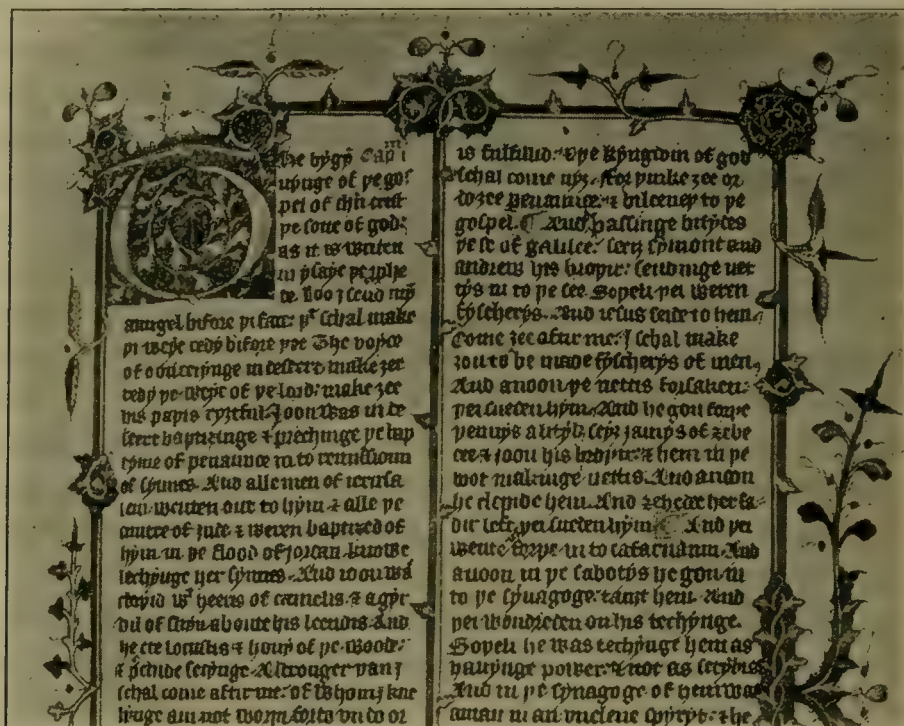 The bygyn Capm i
nynge of þe gos
pel of ihu crist
þe sone of god:
as it is writen
in ysaye þe phe
te. Loo i send myn
aungel bifore þi face: þt schal make
þi weye redy bifore þee The voyce
of oon cryinge in desert: make zee
redy þe weye of þe lord: make zee
his paþis ryztful. Joon was in de
seert baptizinge & prechinge þe bap
tyme of penaunce in to remissioun
of synnes. And alle men of ierusa
lem wenten out to hym: & alle þe
cuntre of jude & weren baptized of
hym in þe flood of jordan. knowe
lechynge her synnes. And ioon was
cloþid wt heeris of camelis. & a gyr
dil of skyn aboute his leendis. And
he ete locustis & hony of þe woode:
& pchide seiynge. A stronger þan j
schal come aftir me: of whom j kne
lynge am not worþi forto vndo or
is fulfillid: & þe kyngdom of god
schal come nyz. for þinke zee or
do zee penaunce: & bileeueþ to þe
gospel. And passinge bisydes
þe se of galilee: seey symont and
andrew his broþir: sendinge net
tys in to þe see. Soþeli þei weren
fyscherys. And iesus seide to hem.
Come zee aftur me: J schal make
zou to be made fyscherys of men.
And anoon þe nettis forsaken:
þei sueden hym. And he gon forþe
þennys a lityl: seyz jamys of zebe
dee & joon his broþir: & hem in þe
boot makinge nettis. And anoon
he clepide hem. And zebedee her fa
dir left: þei sueden hym. And þei
wente forþe in to cafarnaum. And
anoon in þe sabotys he gon in
to þe synagoge: tauzt hem. And
þei wondreden on his techynge.
Soþeli he was techynge hem as
hauynge power: & not as scrybes
And in þe synagoge of hem was
a man in an vnclene spyryt: & he